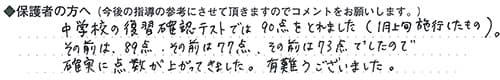 ◆保護者の方へ（今後の指導の参考にさせて頂きますのでコメントをお願いします。）
中学校の復習確認テストでは90点をとれました（1月上旬施行したもの）。
その前は、89点、その前は77点、その前は73点でしたので
確実に点数が上がってきました。有難うございました。